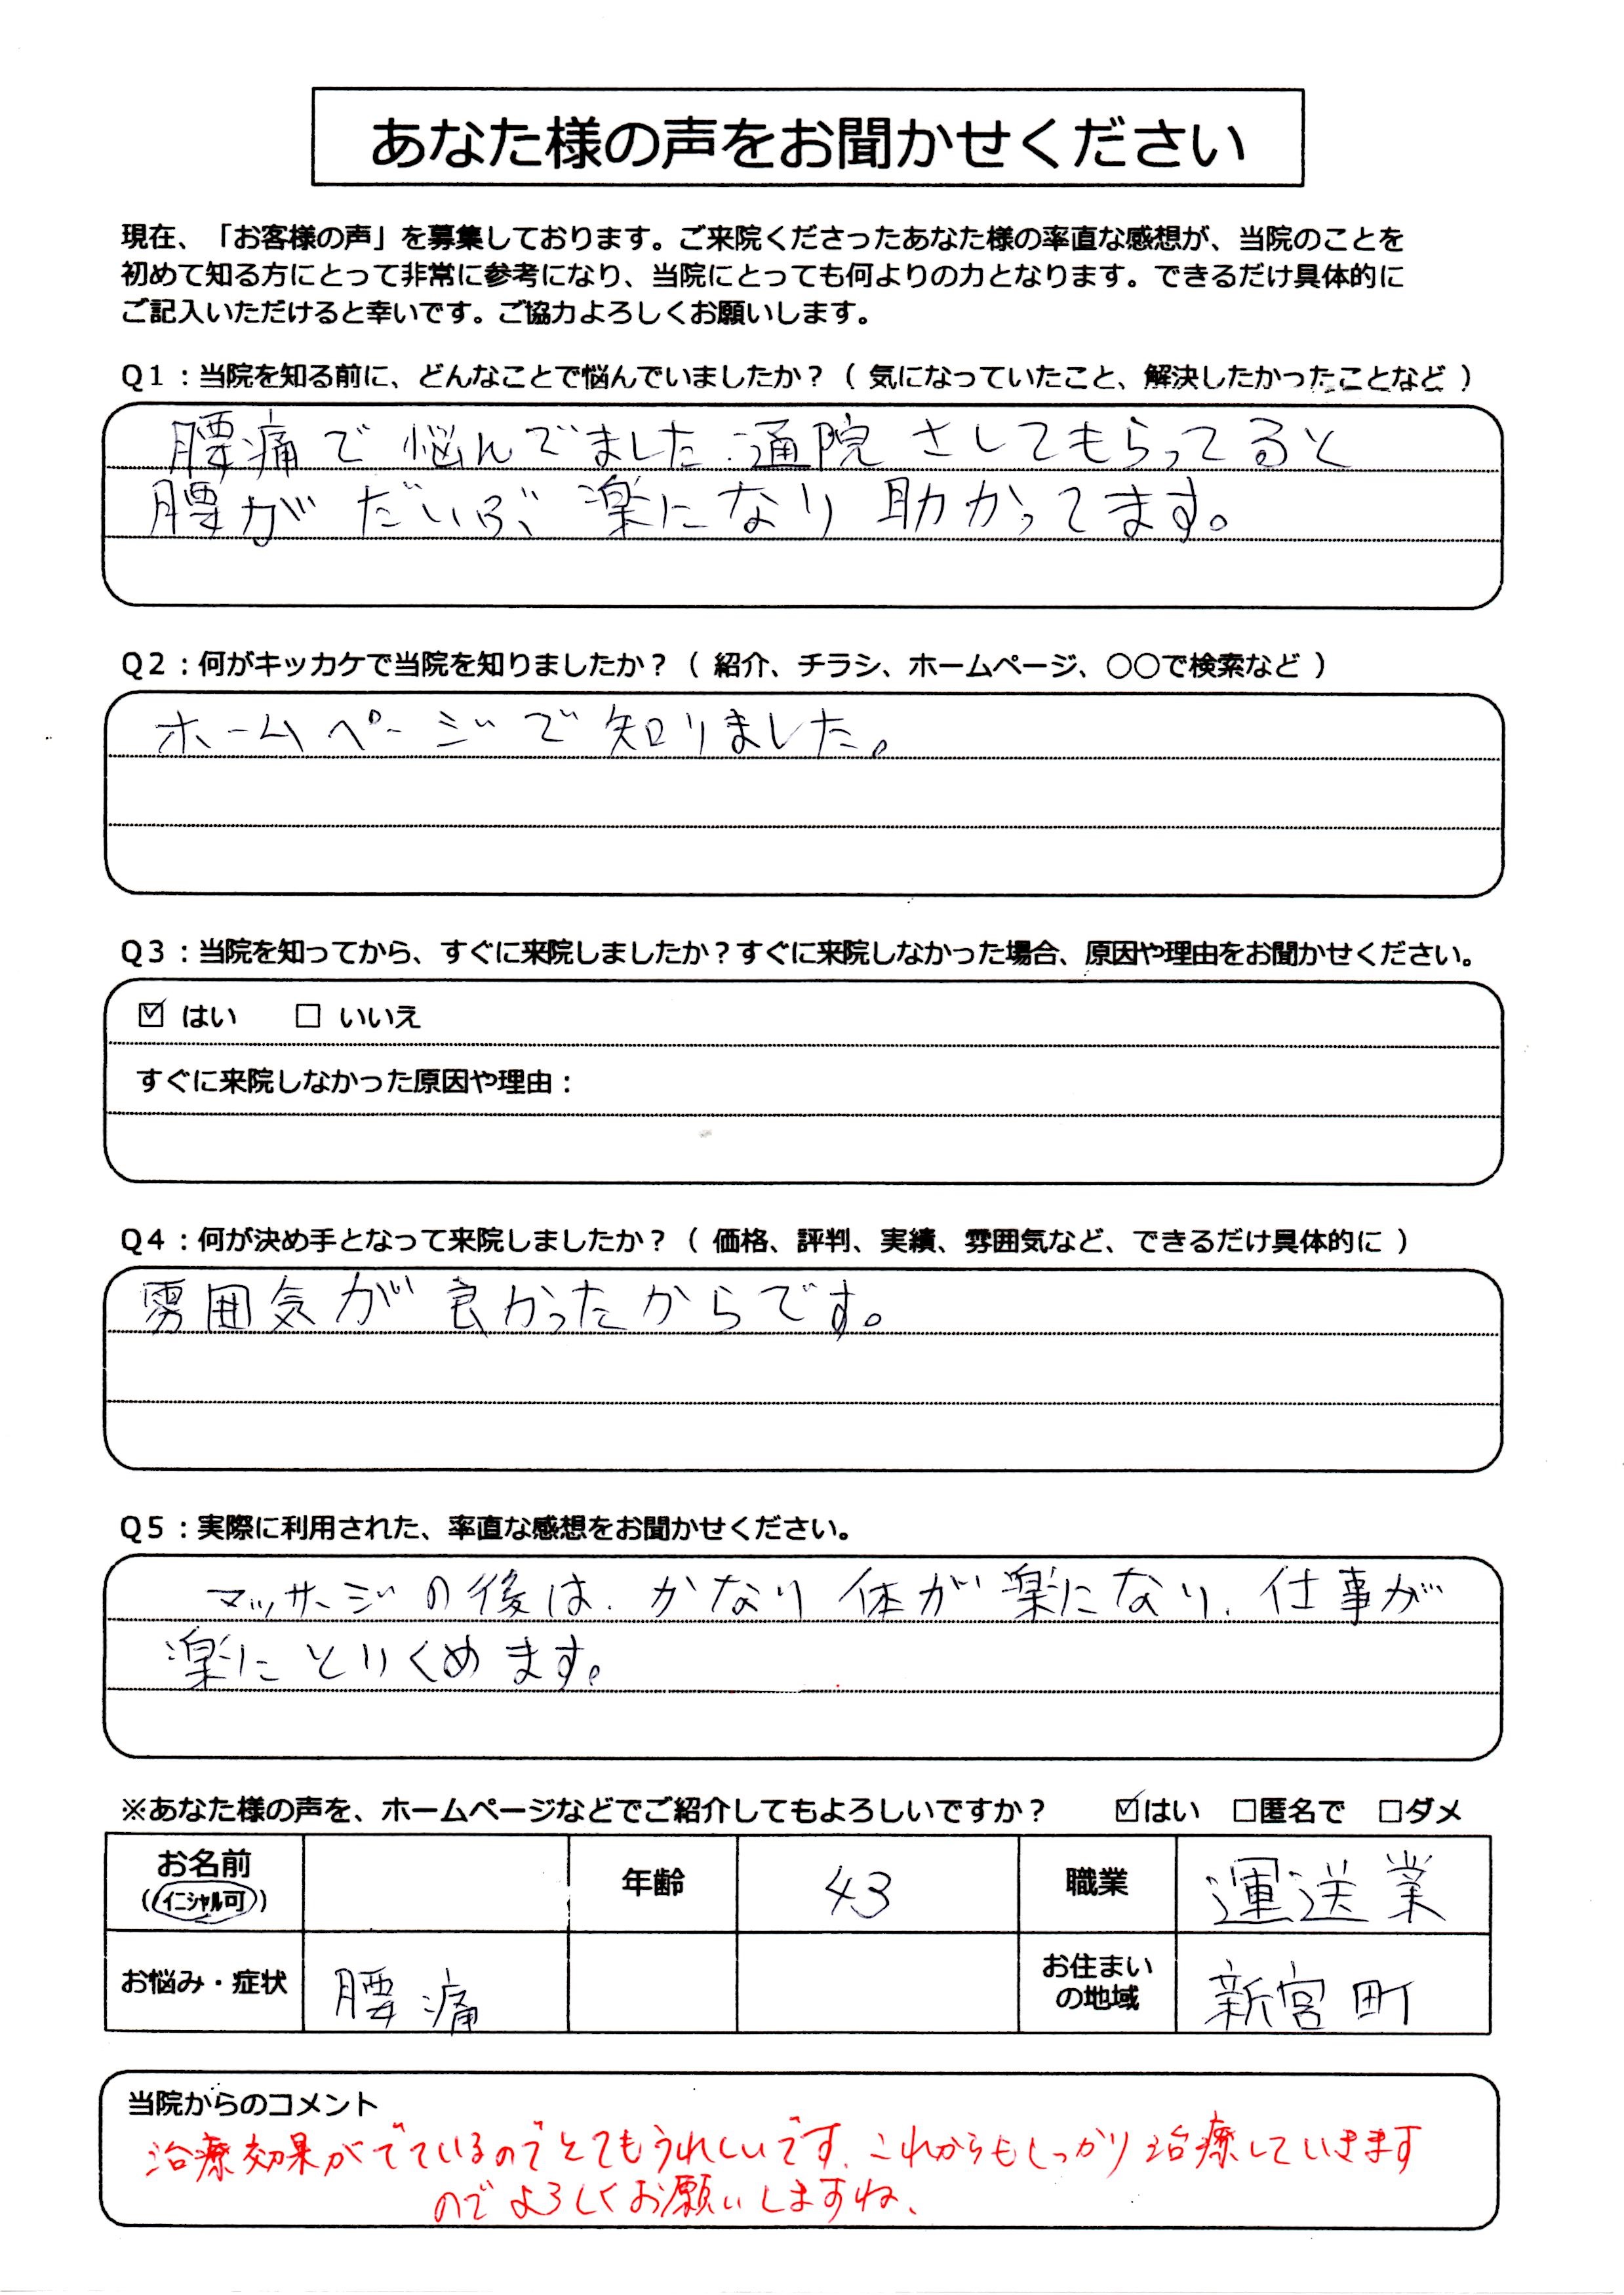 あなた様の声をお聞かせください
現在、「お客様の声」を募集しております。ご来院くださったあなた様の率直な感想が、当院のことを
初めて知る方にとって非常に参考になり、当院にとっても何よりの力となります。できるだけ具体的に
ご記入いただけると幸いです。ご協力よろしくお願いします。
Q1：当院を知る前に、どんなことで悩んでいましたか？（ 気になっていたこと、解決したかったことなど ）
腰痛で悩んでました.通院さしてもらってると
腰がだいぶ楽になり助かってます。
Q2：何がキッカケで当院を知りましたか？（ 紹介、チラシ、ホームページ、○○で検索など ）
ホームページで知りました。
Q3：当院を知ってから、すぐに来院しましたか？すぐに来院しなかった場合、原因や理由をお聞かせください。
☑ はい □ いいえ
すぐに来院しなかった原因や理由：
Q4：何が決め手となって来院しましたか？（ 価格、評判、実績、雰囲気など、できるだけ具体的に ）
雰囲気が良かったからです。
Q5：実際に利用された、率直な感想をお聞かせください。
マッサージの後は、かなり体が楽になり、仕事が
楽にとりくめます。
※あなた様の声を、ホームページなどでご紹介してもよろしいですか？ ☑はい □匿名で □ダメ
お名前 年齢 43 職業 運送業
（（イニシャル可））
お悩み・症状 腰痛 お住まい 新宮町
の地域
当院からのコメント
治療効果がでているのでとてもうれしいです、これからもしっかり治療していきます
のでよろしくお願いしますね、